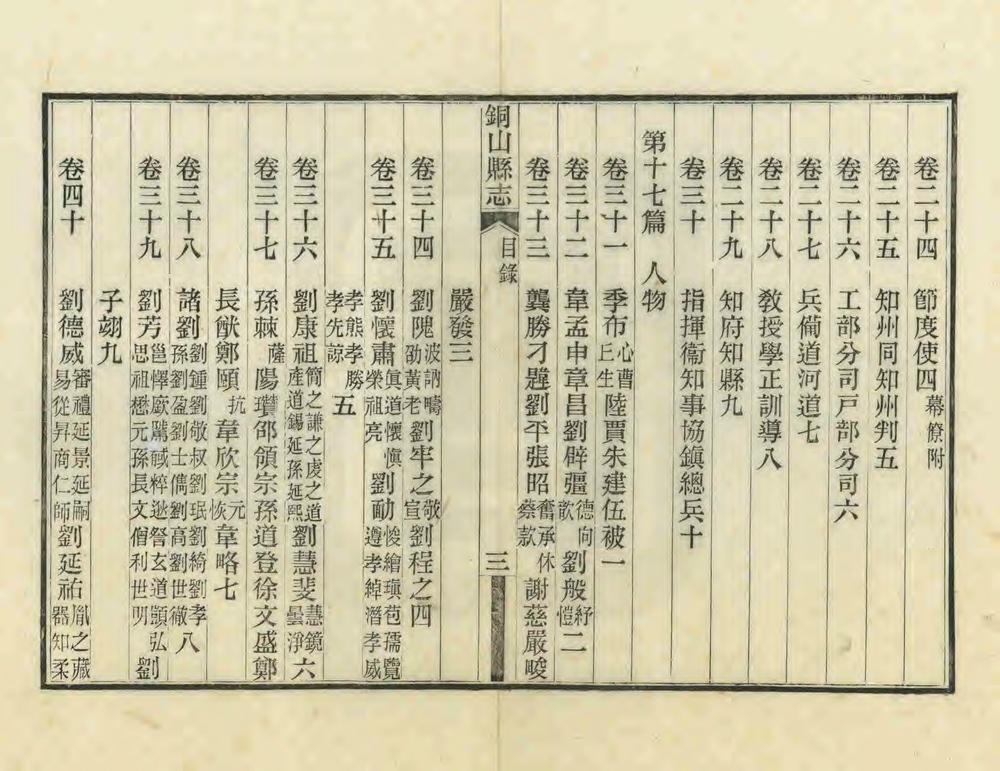 卷二十四 節度使四幕僚附
卷二十五 知州同知州判五
卷二十六 工部分司戸部分司六
卷二十七 兵備道河道七
卷二十八 敎授學正訓導八
卷二十九 知府知縣九
卷三十 指揮衞知事協鎭總兵十
第十七篇 人物
卷三十一 季布心曹丘生陸賈朱建伍被一
卷三十二 韋孟申章昌劉辟彊德向歆劉般紆愷二
卷三十三 龔勝刁韙劉平張昭奮承休蔡款謝慈嚴畯
銅山縣志 目錄 三
嚴發三
卷三十四 劉隗波訥疇劭黃老劉牢之敬宣劉程之四
卷三十五 劉懷肅眞道懷愼榮祖亮劉勔悛繪瑱苞孺覽遵孝綽潛孝威
孝熊孝勝孝先諒五
卷三十六 劉康祖簡之謙之虔之道產道錫延孫延熙劉慧斐慧鏡曇淨六
卷三十七 孫棘薩陽瓚邵領宗孫道登徐文盛鄭
長猷鄭頤抗韋欣宗元恢韋略七
卷三十八 諸劉劉鍾劉敬叔劉珉劉綺劉孝孫劉盈劉士儁劉高劉世徹八
卷三十九 劉芳邕懌廞騭戫粹逖詧玄道顗弘思祖懋元孫長文僧利世明劉
子翊九
卷四十 劉德威審禮延景延嗣易從昇商仁師劉延祐胤之藏器知柔